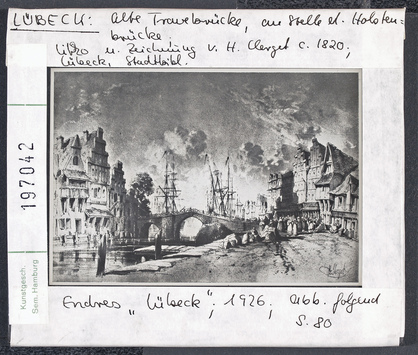 LÜBECK: Alte Travebrücke, an Stelle d. Holsten=
brücke.
Litho u. Zeichnung v. H. Clerget c. 1820;
Lübeck, Stadtbibl.
197042
Kunstgesch.
Sem. Hamburg
Endres „Lübeck"; 1926, Abb. folgend
S. 80